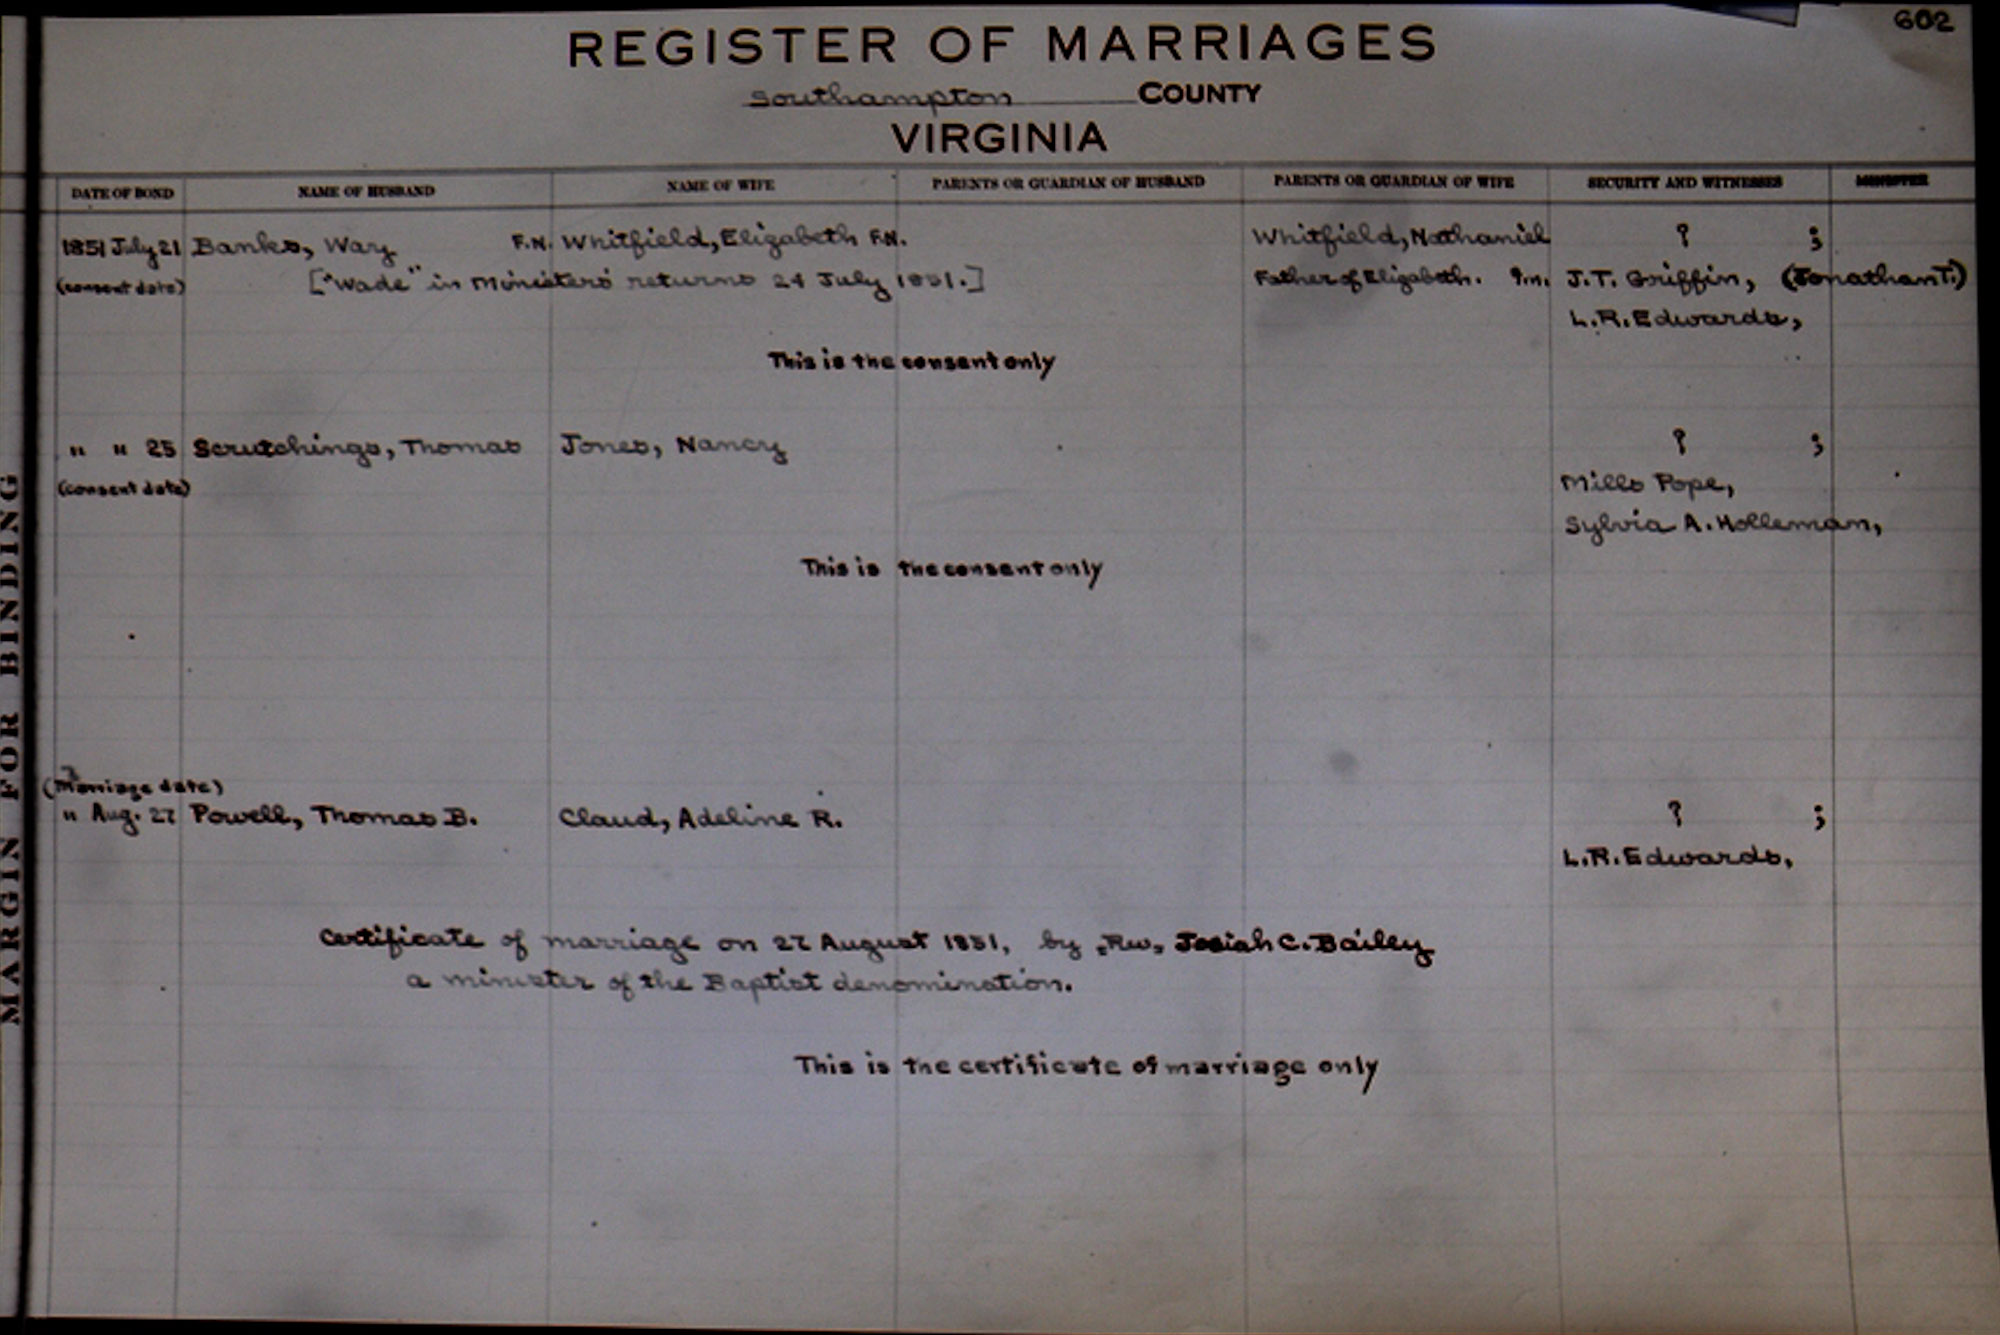 602
REGISTER OF MARRIAGES
Southampton COUNTY
VIRGINIA
DATE OF BOND NAME OF HUSBAND NAME OF WIFE PARENTS OR GUARDIAN OF HUSBAND PARENTS OR GUARDIAN OF WIFE SECURITY AND WITNESSES MINISTER
1851 July 21 Banks, Wary F.N. Whitfield, Elizabeth F.N. Whitfield, Nathaniel ? ;
(consent date) ["Wade" in Ministers' returns 24 July 1851.] Father of Elizabeth. J.T. Griffin, (Jonathan T.)
L.R. Edwards,
This is the consent only
" " 25 Scrutchings, Thomas Jones, Nancy ? ;
(consent date) Mills Pope,
Sylvia A. Holleman,
This is the consent only
(Marriage date)
" Aug. 27 Powell, Thomas B. Claud, Adeline R. ? ;
L.R. Edwards,
Certificate of marriage on 27 August 1851, by "Rev" Josiah C. Bailey
a minister of the Baptist denomination.
This is the certificate of marriage only
MARGIN FOR BINDING